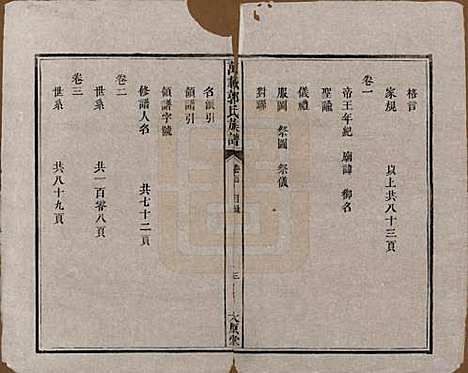 格言
家規　以上共八十三頁
卷一
帝王年紀　廟諱　御名
聖諭
儀禮
服圖　祭圖　祭儀
對聯
萬載郭氏族譜　卷首　目錄　三　太原堂
名韻引
領譜引
領譜字號
修譜人名　共七十二頁
卷二
世系　共一百零八頁
卷三
世系　共八十九頁